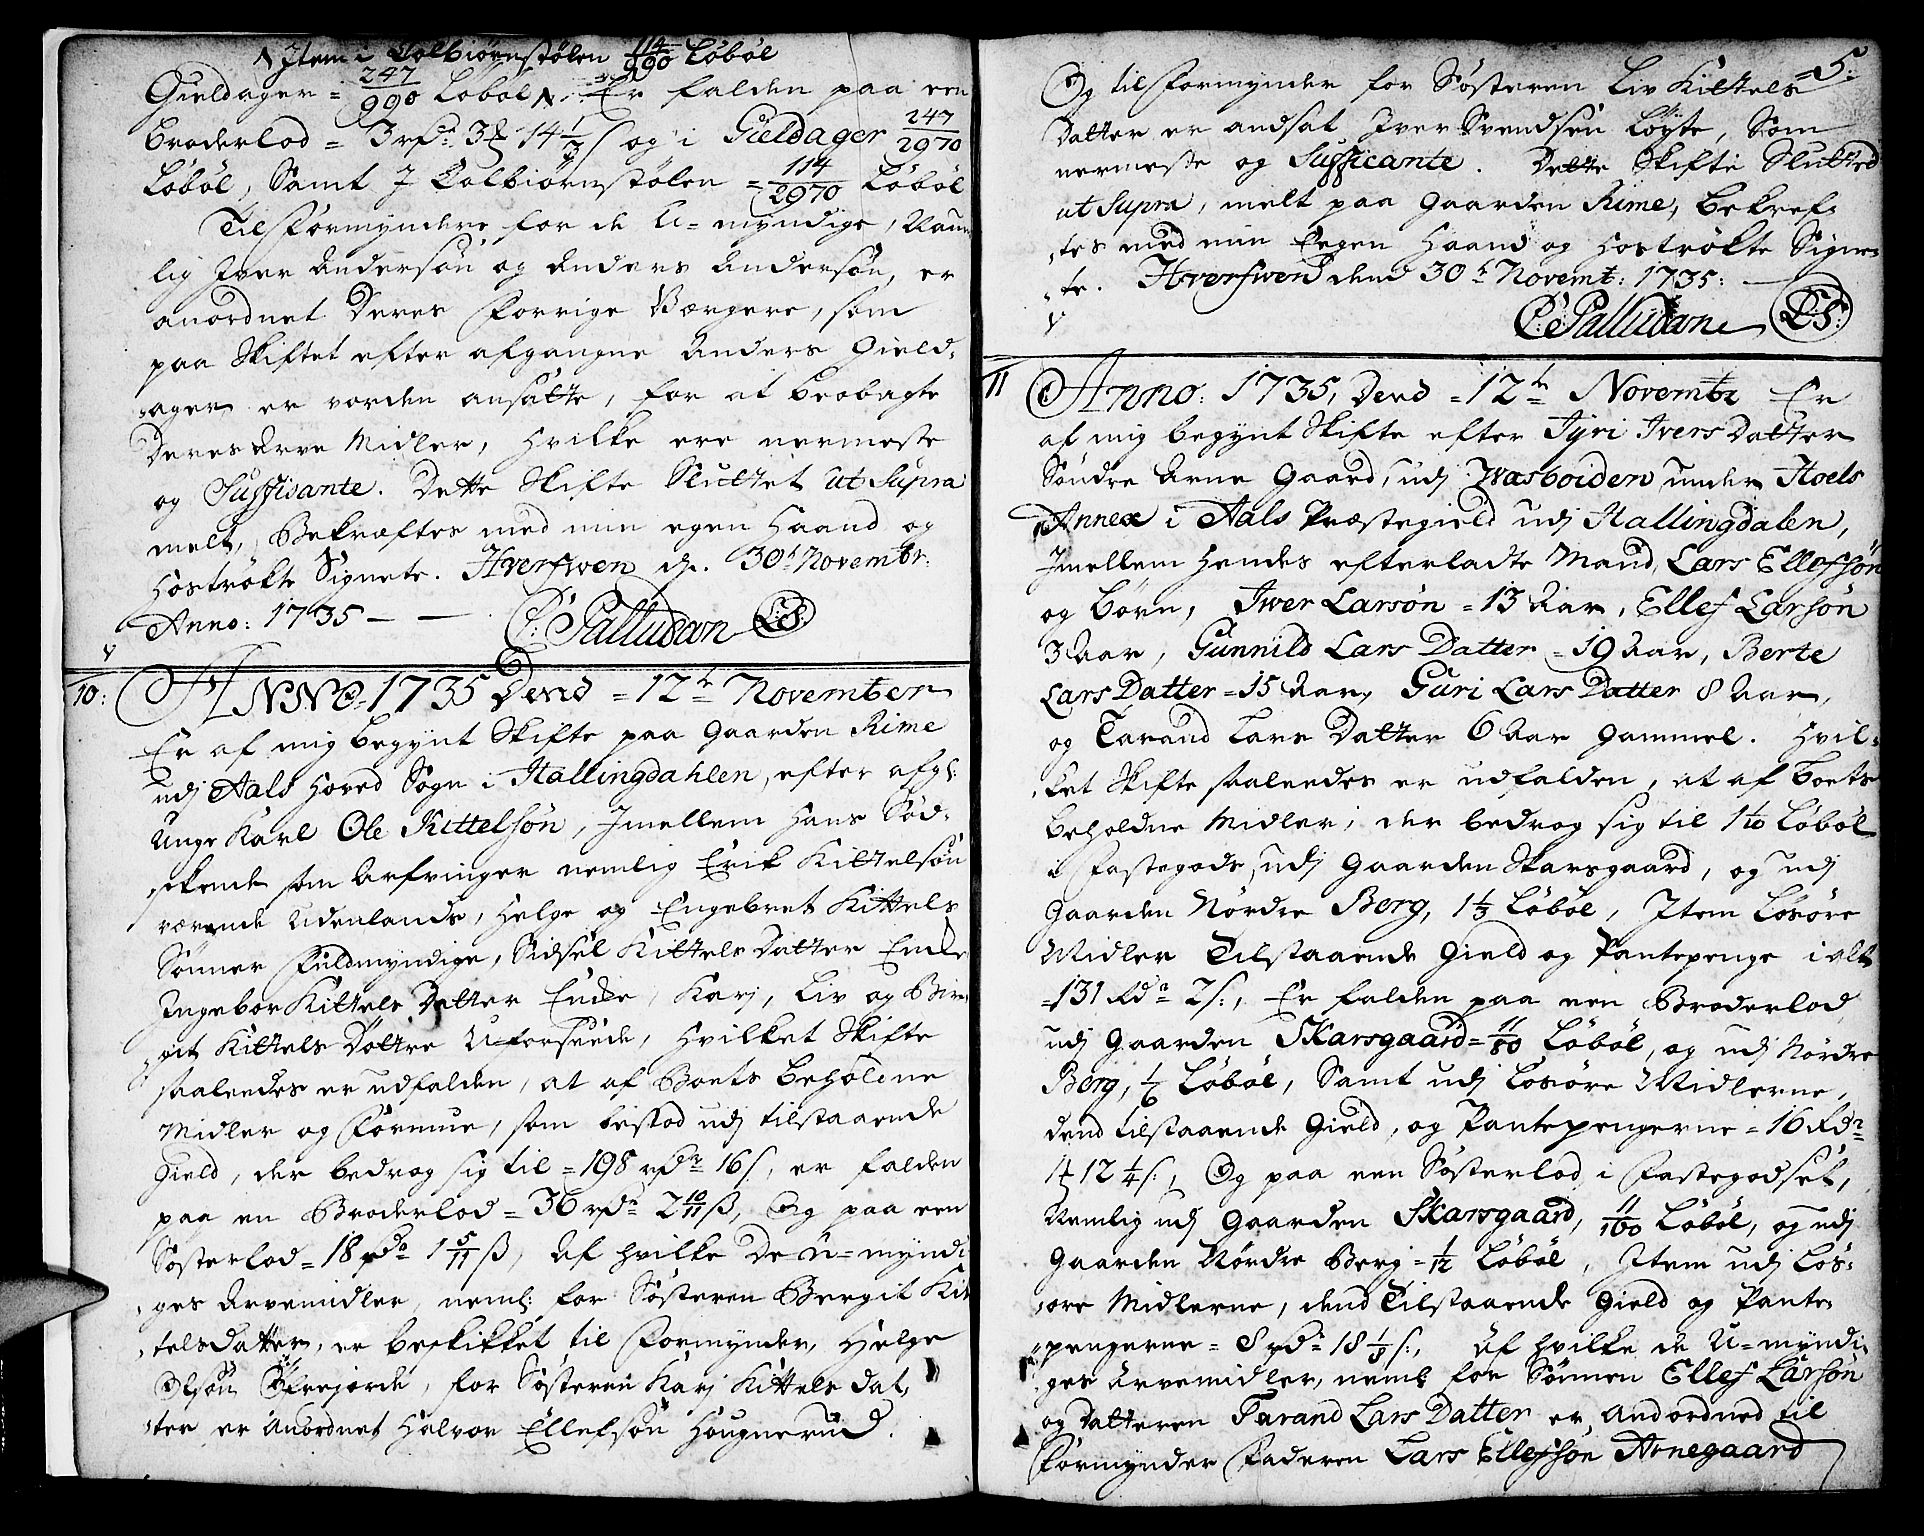 Item i Kolbiørnstølen 114/990 Løbøl
Gieldager = 247/990 Løbøl. Er falden paa een
Broderlod = 3 rdr. 3 ₰ 14 1/3 s og i Gieldager 247/2970
Løbøl, Samt J Kolbiørnstølen = 114/2970 Løbøl
Til Formyndere for de U-myndige, Naun-
lig Iver Andersøn og Anders Andersøn, er
anordnet Deres Forrige Værgere, som
paa Skiftet efter afgangne Anders Gield-
ager er vorden ansatte, for at beobagte
Deres Arve Midler, Hvilke ere nermeste
og Suffisante. Dette Skifte Sluttet ut Supra
melt, Bekræftes med min egen Haand og
Hostrøkte Signete. Hverfwen d. 30t Novembr:
Anno: 1735 — —
P: Palludan LS.
10: ANNO 1735 Dend = 12te November
Er af mig begynt Skifte paa Gaarden Rime
udj Aals Hoved Sogn i Hallingdahlen, efter afgl:
Unge Karl Ole Kittelsøn, Imellem Hans Sød-
skende som Arfvinger nemlig Erik Kittelsøn
værende Udenlands, Helge og Engebret Kittels
Sønner Fuldmyndige, Sidsel Kittels Datter Encke
Ingebor Kittels Datter Encke, Karj, Liv og Ber-
git Kittels Døttre Uforseede, Hvilket Skifte
saaledes er udfalden, at af Boets beholdne
Midler og Formue, som bestod udj tilstaaende
Gield, der bedrog sig til = 198 rdr 16 s, er falden
paa en Broderlod = 36 rdr 2 10/11 ß, Og paa een
Søsterlod = 18 rdr 1 5/11 ß, Af hvilke De u-myndi-
ges Arvemidler, neml: for Søsteren Bergit Kit-
telsdatter, er beskikket til Formynder, Helge
Olsøn Øfrejorde, for Søsteren Karj Kittels Dat-
ter er Anordnet Halvor Ellefsøn Hougnerud.
5:
Og til Formynder for Søsteren Liv Kittels
Datter er andsat Iver Svendsen Løyte, Som
nermeste og Sufficante. Dette Skifte Slutted
ut Supra, melt paa Gaarden Rime, bekref-
tes med min Eegen Haand og Hostrøkte Signe-
te. Hverfwen dend 30t Novemt: 1735:
P: Palludan LS:
11 Anno: 1735, Dend = 12te Novembr Er
af mig begynt Skifte efter Tyri Ivers Datter
Søndre Arne Gaard, udj Wasboiden under Hoels
Annex i Aals Præstegield udj Hallingdalen,
Imellem Hendes efterladte Mand, Lars Ellefsøn
og Børn, Iwer Larsøn = 13 Aar, Ellef Larsøn
3 Aar, Gunnild Lars Datter = 19 Aar, Berte
Lars Datter = 15 Aar, Guri Lars Datter 8 Aar,
og Tarand Lars Datter 6 Aar Gammel. Hvil-
ket Skifte saaledes er udfalden, at af Boets
Beholdne Midler, der bedrog sig til 1 1/10 Løbøl
i Fastegods, udj Gaarden Skarsgaard, og udj
Gaarden Nørdre Berg, 1 1/3 Løbøl, Item Løsøre
Midler Tilstaaende Gield og Pantepenge i alt
= 131 Rdr 2 s:, Er falden paa een Broderlod
udj Gaarden Skarsgaard = 11/80 Løbøl, og udj Nørdre
Berg, 1/6 Løbøl, Samt udj Løsøre Midlerne,
dend tilstaaende Gield, og Pantepengerne = 16 Rdr
1 ₰ 12 1/4 s:, Og paa een Søsterlod i Fastegodset,
Nemlig udj Gaarden Skarsgaard, 11/160 Løbøl, og udj
Gaarden Nørdre Berg = 1/12 Løbøl, Item udj Løs-
øre Midlerne, dend Tilstaaende Gield og Pante
pengerne = 8 rdr 18 1/8 s:, Af hvilke de U-myndi-
ges Arvemidler, neml: for Sønnen Ellef Larsøn
og Datteren Tarand Lars Datter er Andordned til
Formynder Faderen Lars Ellefsøn Arnegaard